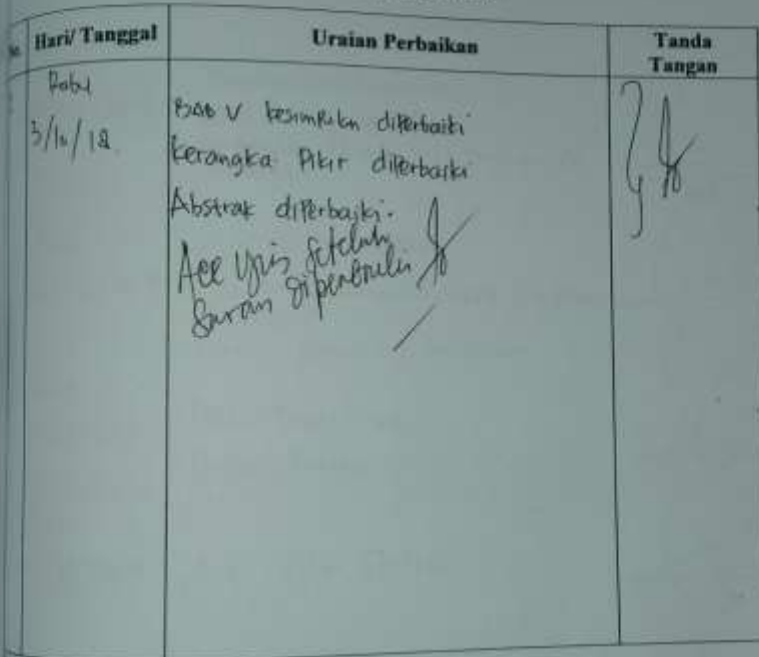 Hari/ Tanggal
Uraian Perbaikan
Tanda
Tangan
Rabu
3/10/18
BAB V kesimpulan diperbaiki
Kerangka Pikir diperbaiki
Abstrak diperbaiki.
Acc setelah
Saran diperbaiki